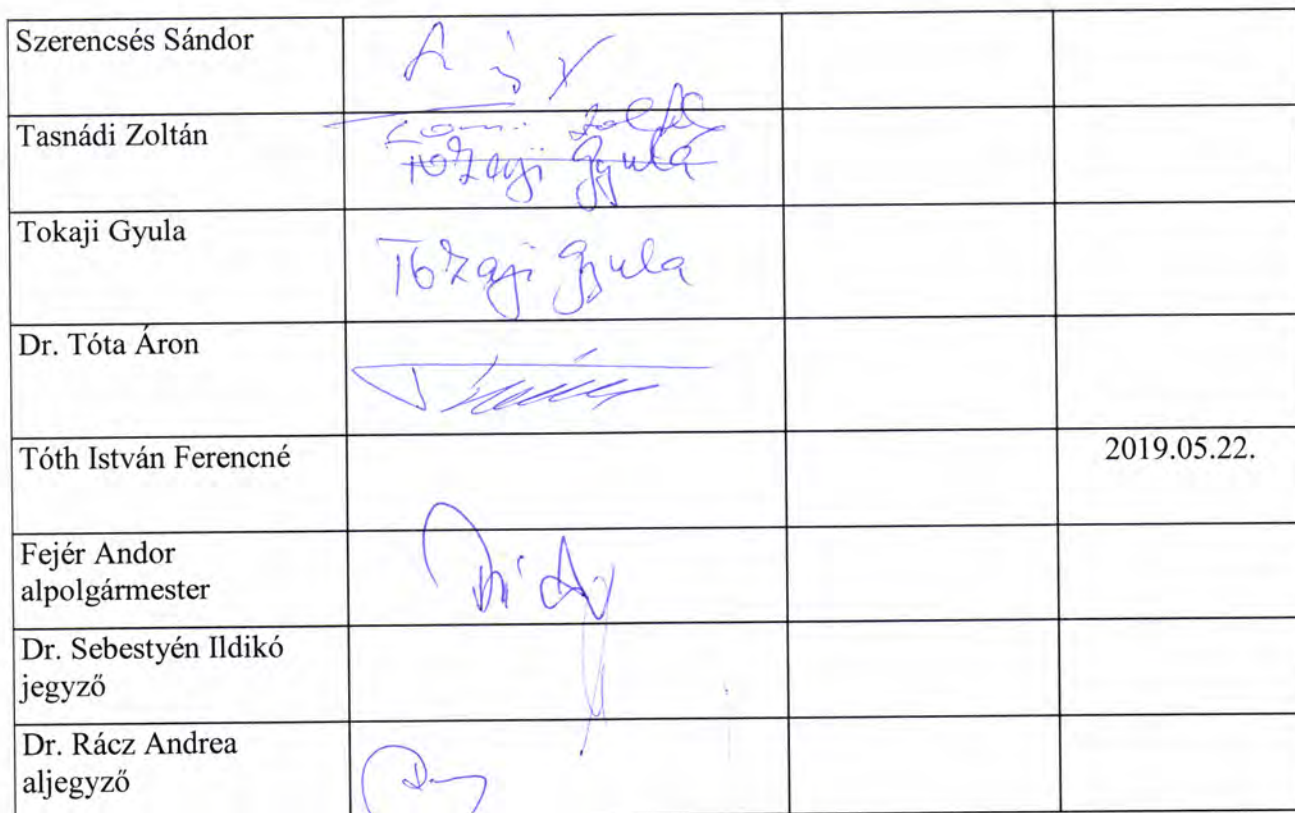 Szerencsés Sándor
Tasnádi Zoltán
Tokaji Gyula
Tokaji Gyula
Tokaji Gyula
Dr. Tóta Áron
Tóth István Ferencné
2019.05.22.
Fejér Andor
alpolgármester
Dr. Sebestyén Ildikó
jegyző
Dr. Rácz Andrea
aljegyző